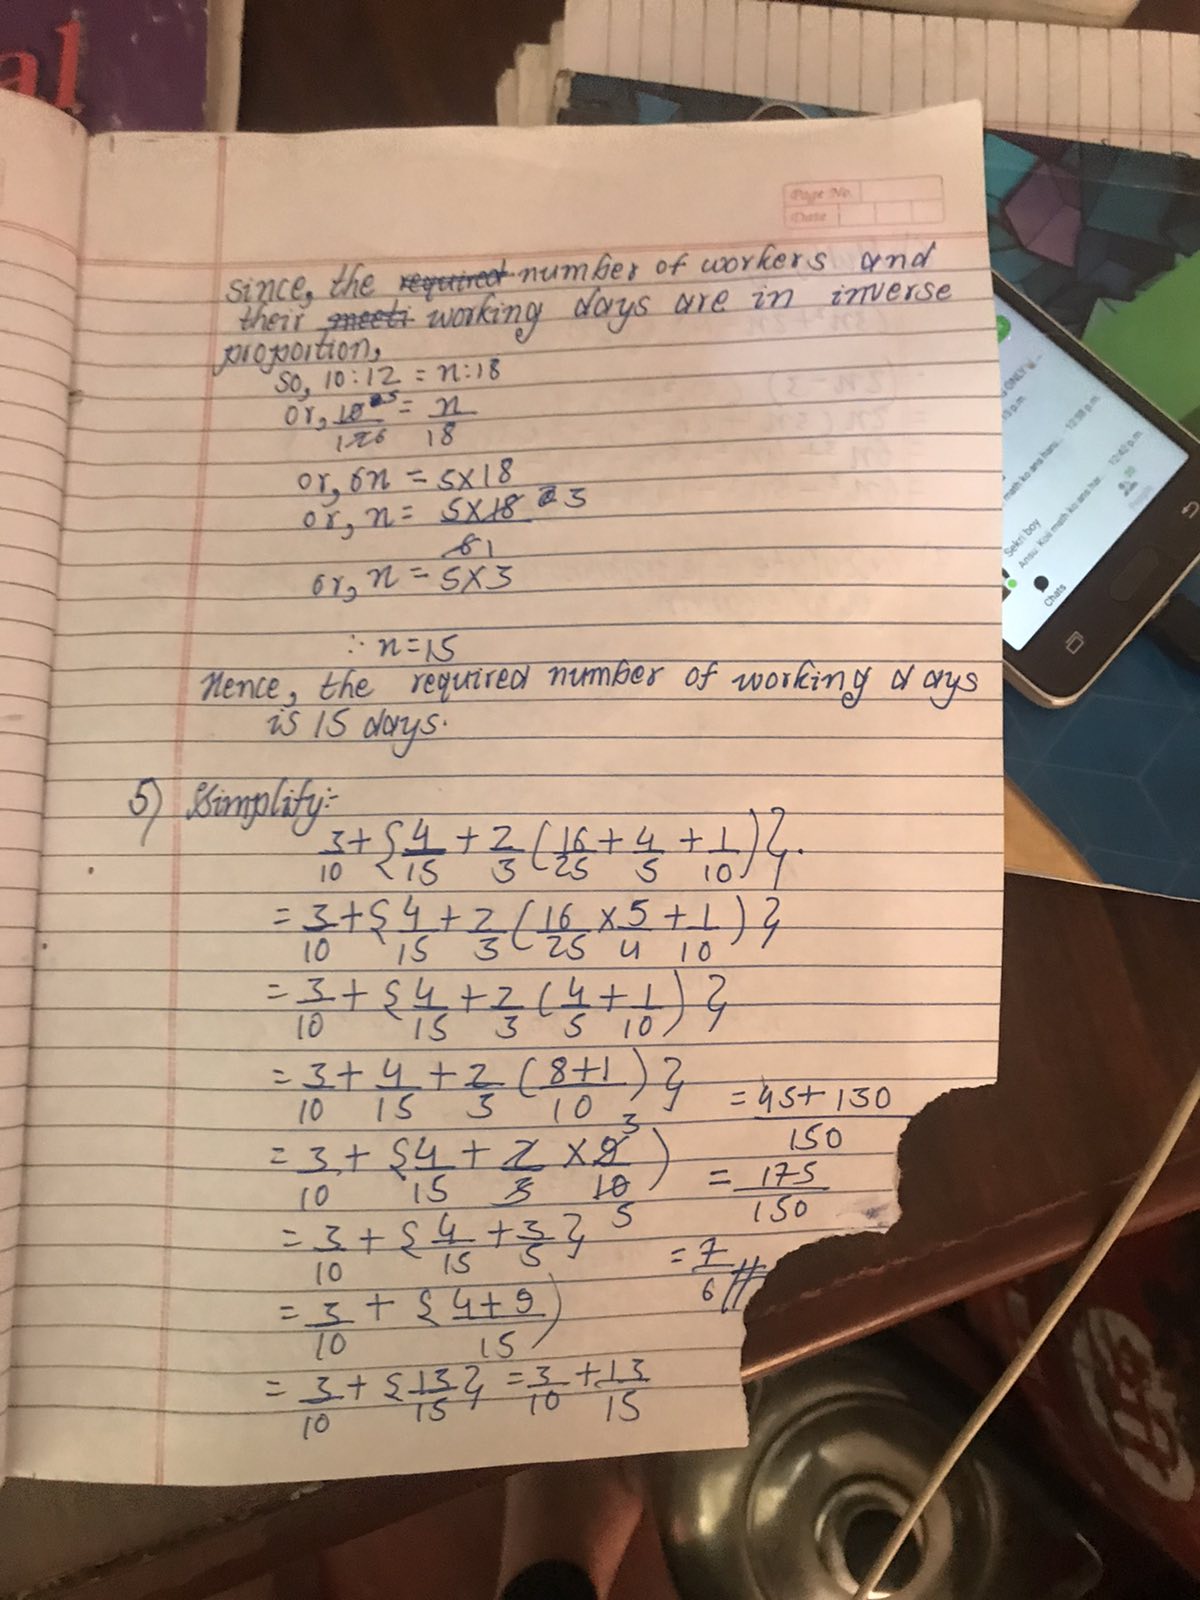 al
Page No.
Date
since, the required number of workers and
their meeti working days are in inverse
proportion,
so, 10:12 = n:18
or, 10 5/12 6 = n/18
or, 6n = 5×18
or, n = 5×18 3/6 1
or, n = 5×3
∴ n=15
Hence, the required number of working days
is 15 days.
5) Simplify:-
3/10 + {4/15 + 2/3 (16/25 + 4/5 + 1/10)}.
= 3/10 + {4/15 + 2/3 (16/25 × 5/4 + 1/10)}
= 3/10 + {4/15 + 2/3 (4/5 + 1/10)}
= 3/10 + 4/15 + 2/3 (8+1/10)}
= 3/10 + {4/15 + 2/3 × 9 3/10 5)
= 3/10 + {4/15 + 3/5}
= 3/10 + {4+9/15)
= 3/10 + {13/15} = 3/10 + 13/15
= 45+130/150
= 175/150
= 7/6
ONLY
12:58 p.m.
math ko ans haru...
12:42 p.m.
Sekri boy
Ansu: Koii math ko ans har...
Chats
People